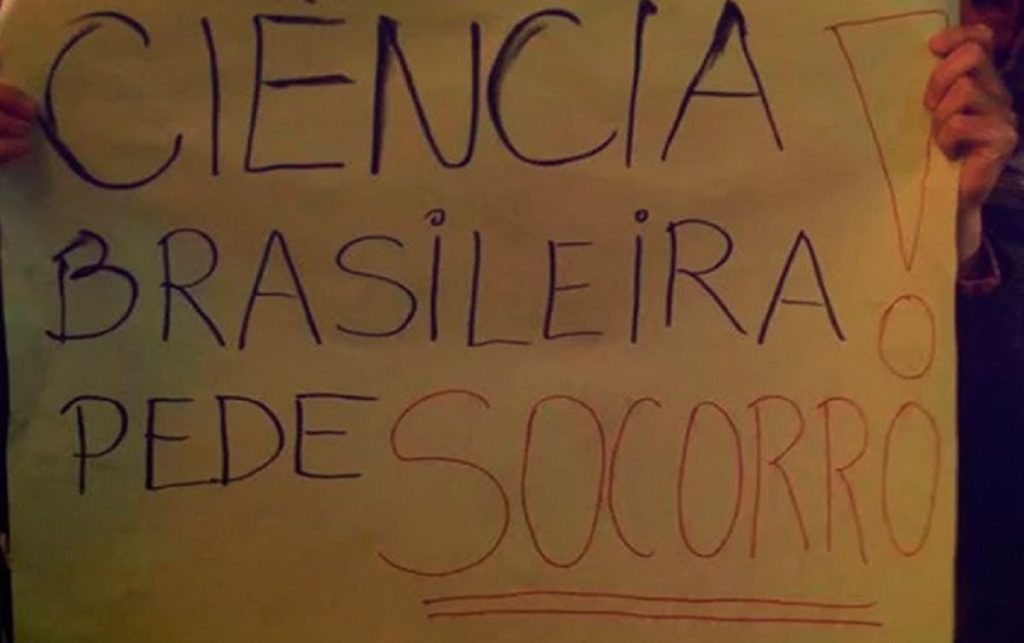 CIÊNCIA
BRASiLEiRA !
PEDE SOCORRO